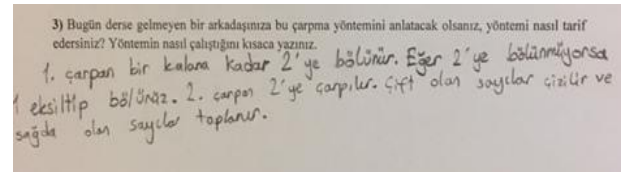 3) Bugün derse gelmeyen bir arkadaşınıza bu çarpma yöntemini anlatacak olsanız, yöntemi nasıl tarif
edersiniz? Yöntemin nasıl çalıştığını kısaca yazınız.
1. çarpan bir kalana kadar 2'ye bölünür. Eğer 2'ye bölünmüyorsa
1 eksiltip böl/ünüz. 2. çarpan 2'ye çarpılır. Çift olan sayılar çizilir ve
sağda olan sayılar toplanır.